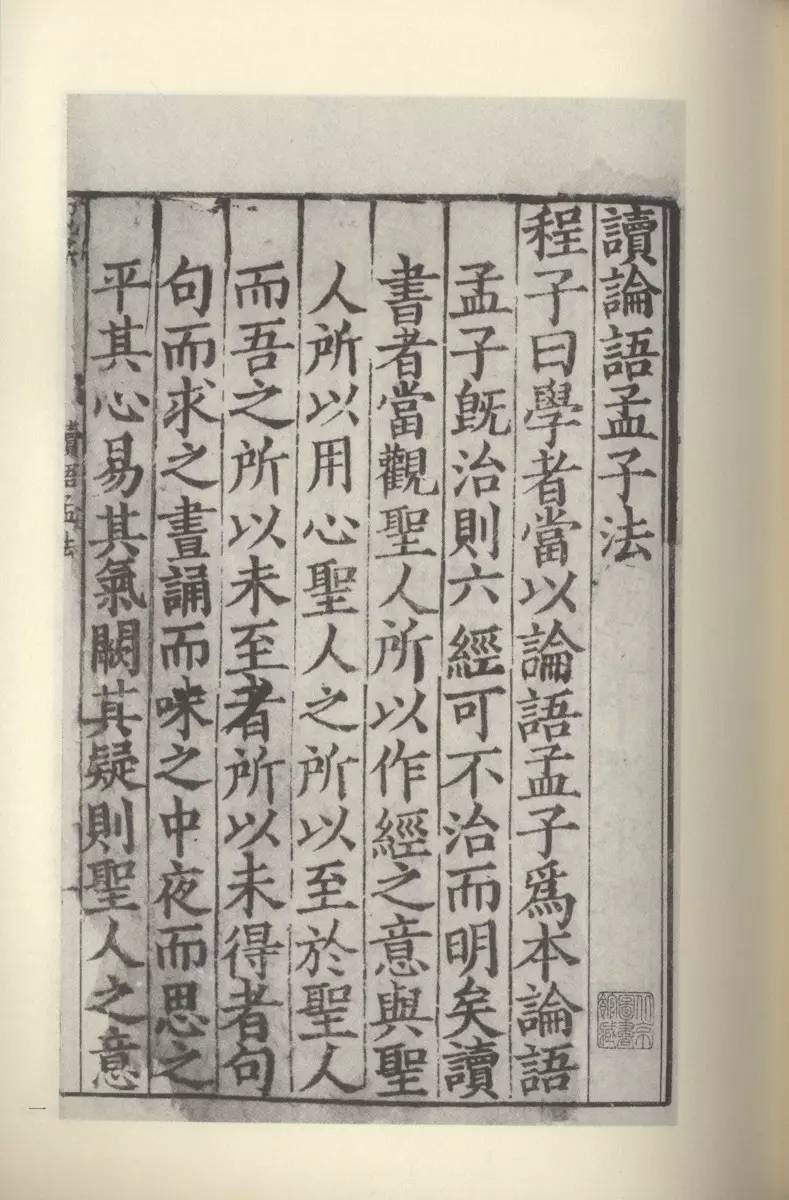 讀論語孟子法
程子曰學者當以論語孟子爲本論語
孟子旣治則六經可不治而明矣讀
書者當觀聖人所以作經之意與聖
人所以用心聖人之所以至於聖人
而吾之所以未至者所以未得者句
句而求之晝誦而味之中夜而思之
平其心易其氣闕其疑則聖人之意
讀語孟法
北京圖書館藏
一